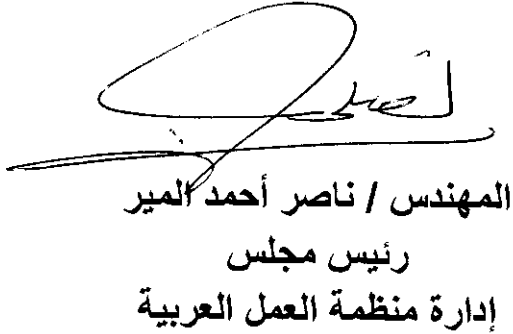 المهندس / ناصر أحمد المير
رئيس مجلس
إدارة منظمة العمل العربية